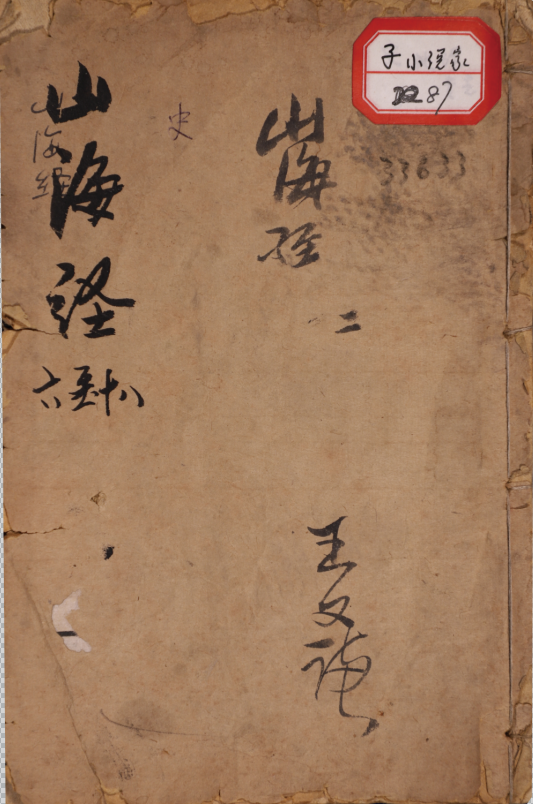 子小説家
87
33633
山海経
二
王文
史
山海經
山海経
六至十八